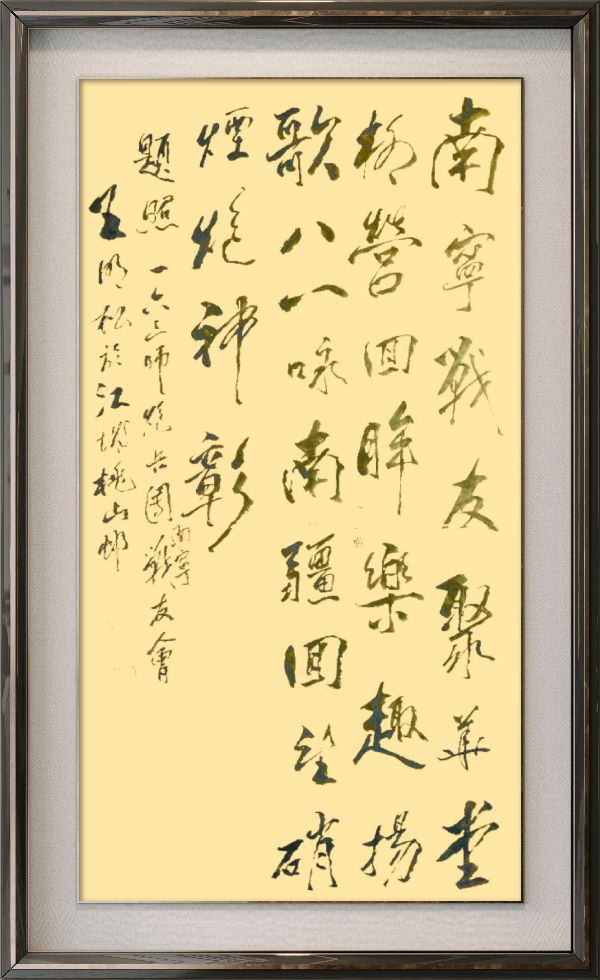 南寧戰友聚華堂
柳營回眸樂趣揚
歌八一咏南疆回望硝
煙炮神彰
題照 一六三師炮兵團南寧戰友會
王明松於江桃山邨